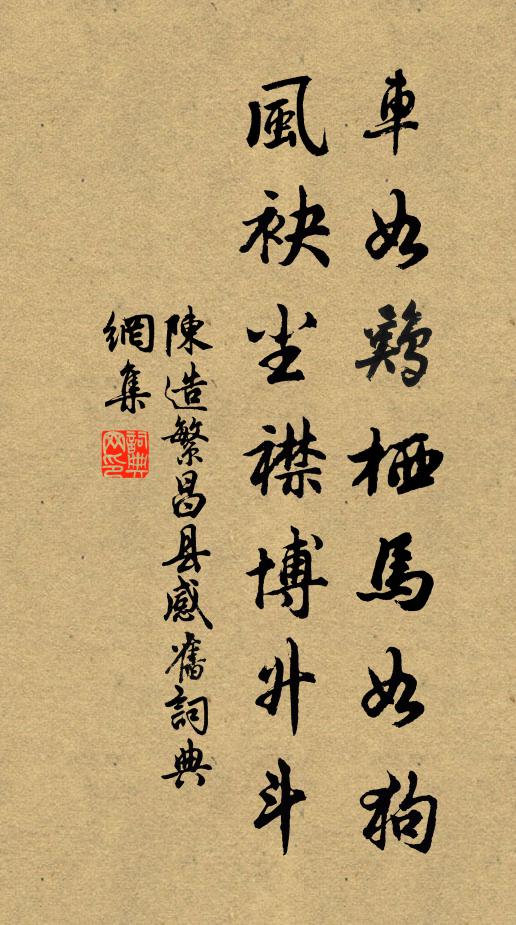 車如鷄栖馬如狗
風袂尘襟博升斗
陳造繁昌县感舊詞典
網集
詞典網印